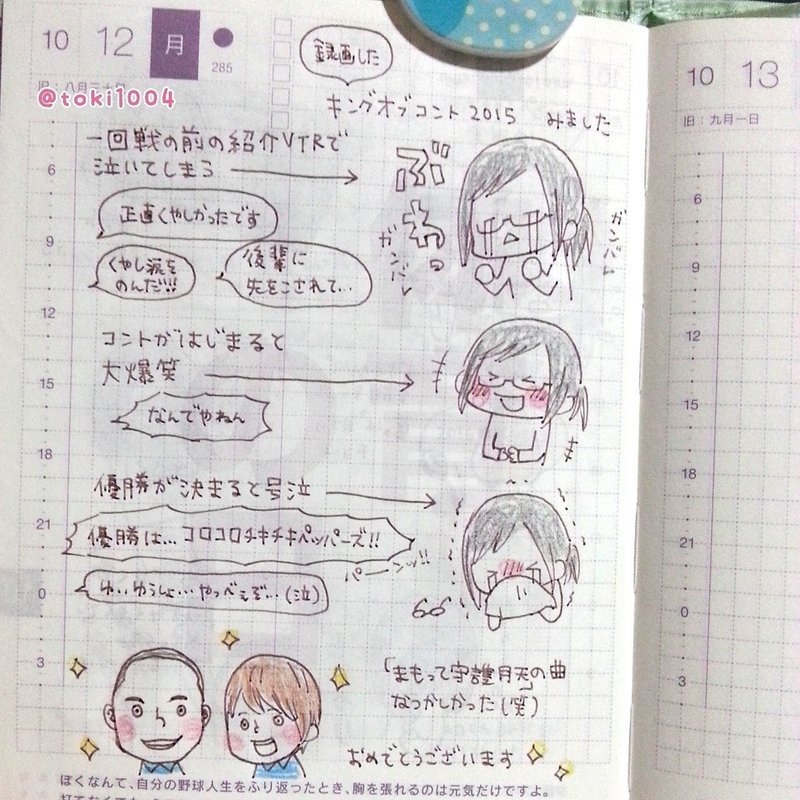 10 12 月
285
旧:八月三十日
@toki1004
録画した
キングオブコント2015 みました
一回戦の前の紹介VTRで
泣いてしまう
ぶわっ
ガンバレ
ガンバレ
正直くやしかったです
くやし涙を
のんだ!!!
後輩に
先をこされて…
コントがはじまると
大爆笑
なんでやねん
優勝が決まると号泣
優勝は…コロコロチキチキペッパーズ!!
パーンッ!!
ゆ..ゆうしょ…やっべぇぞ…(泣)
「まもって守護月天」の曲
なつかしかった(笑)
おめでとうございます
ぼくなんて、自分の野球人生をふり返ったとき、胸を張れるのは元気だけですよ。
6
9
12
15
18
21
0
3
10 13
旧:九月一日
6
9
12
15
18
21
0
3